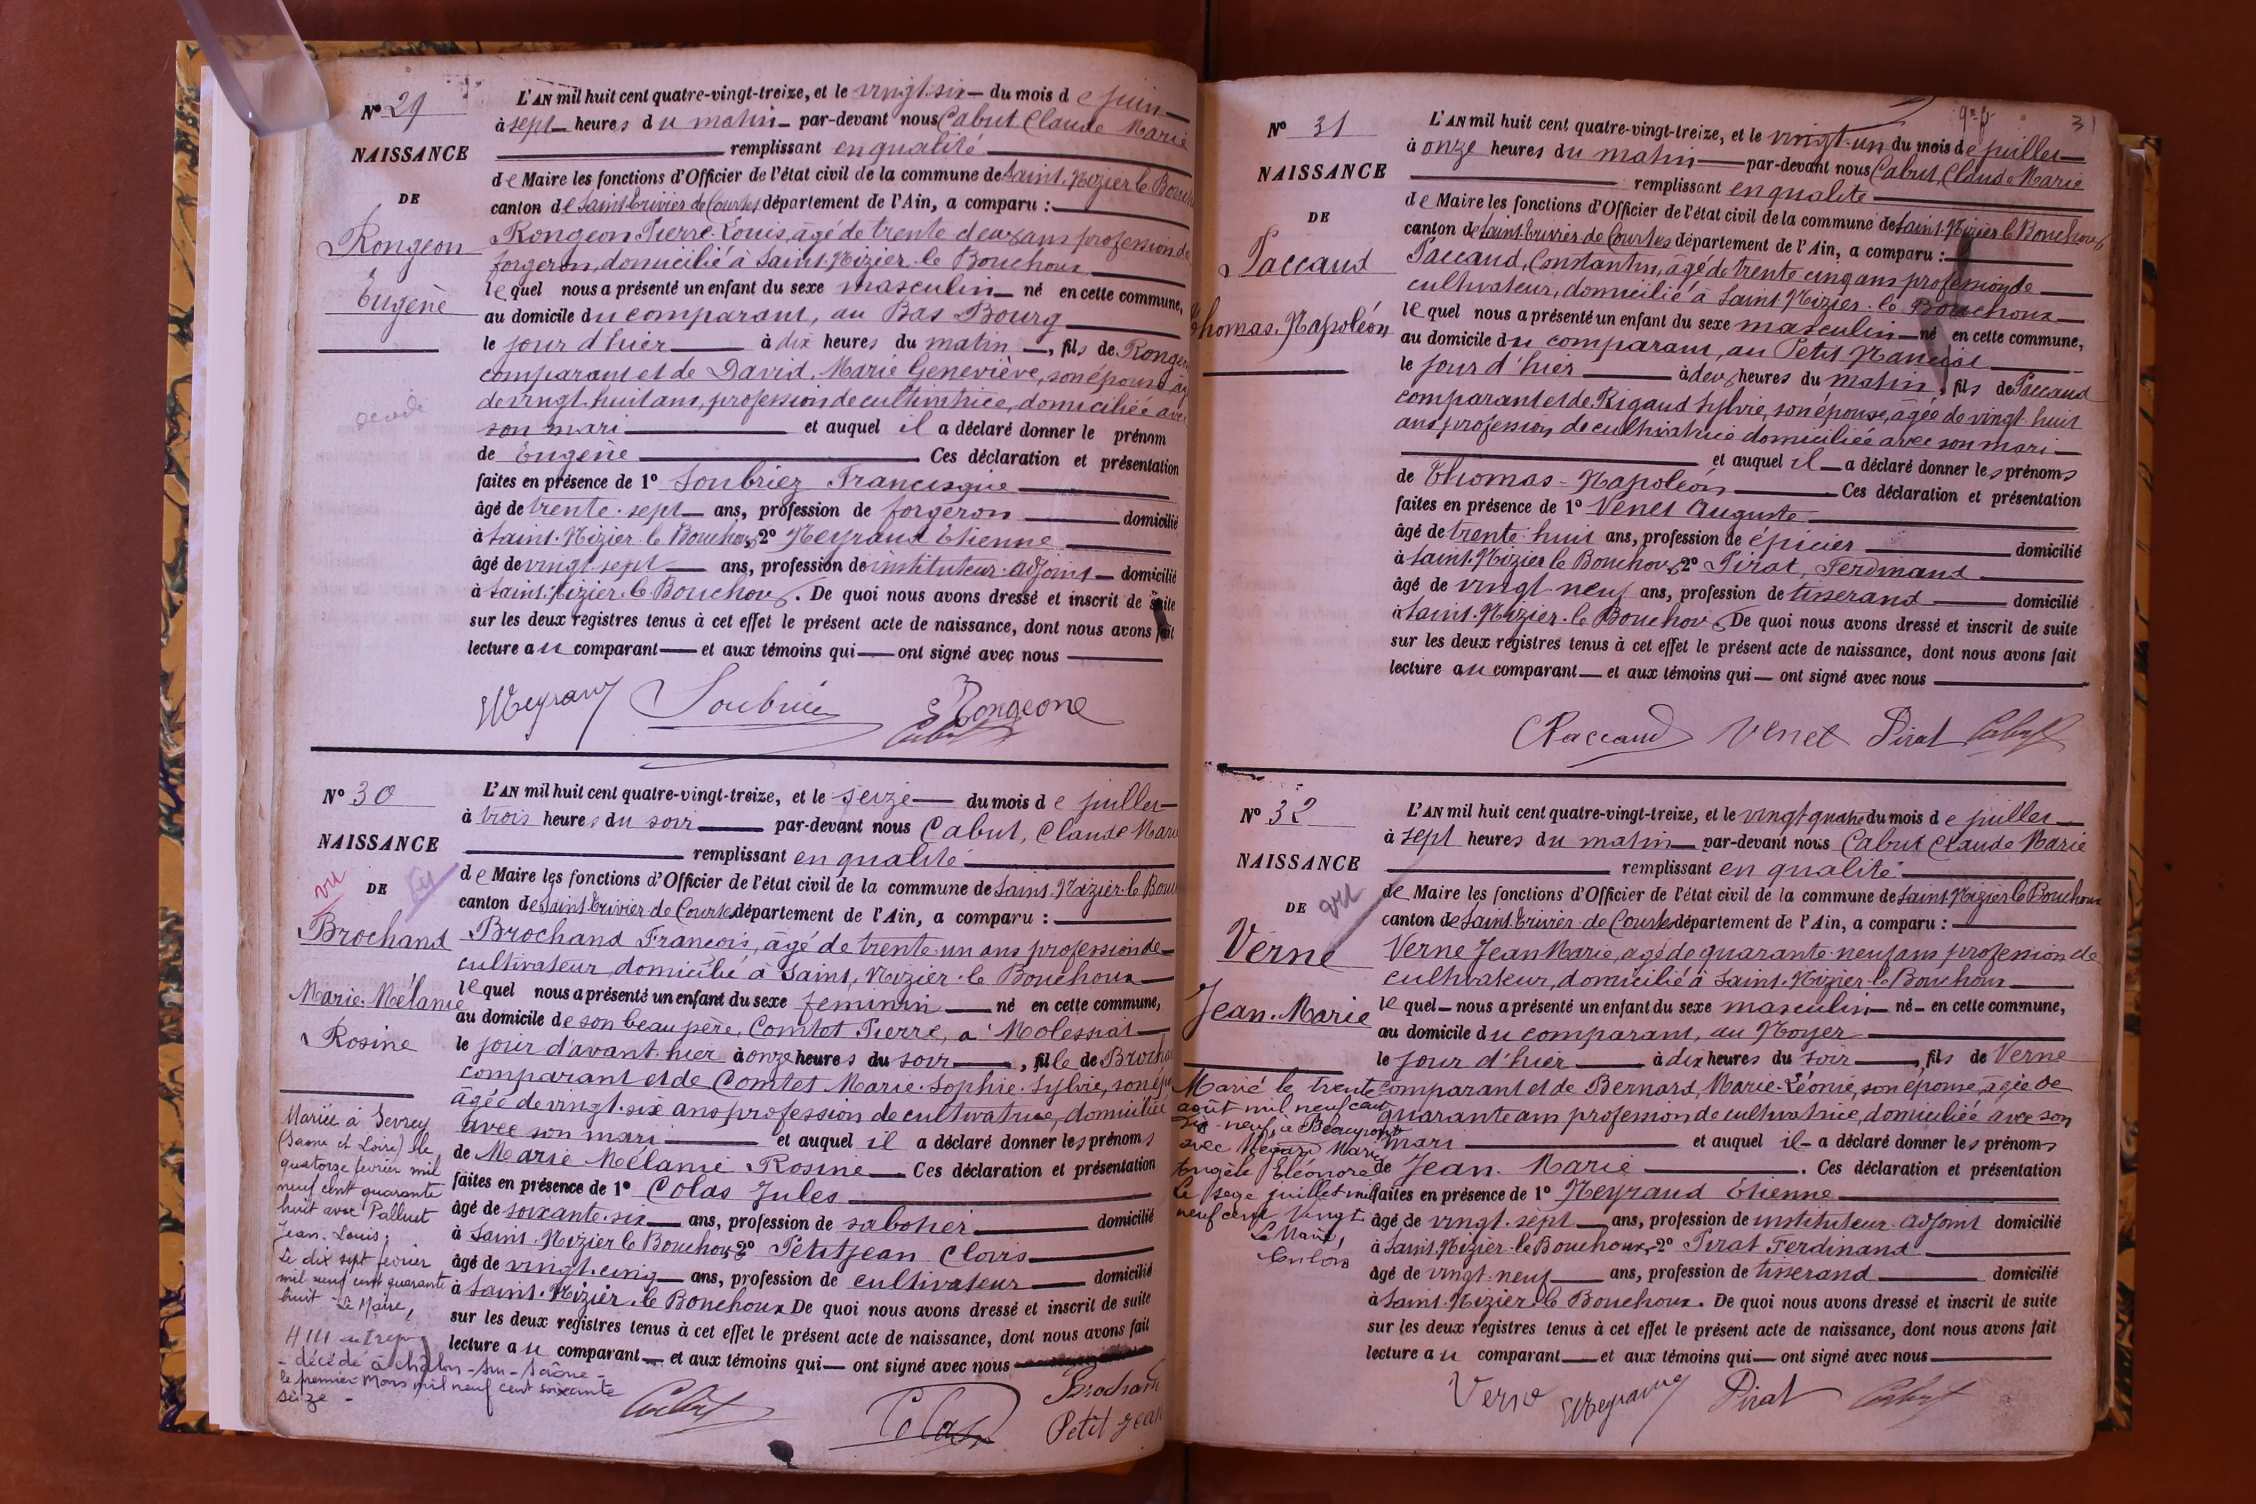 N° 29
NAISSANCE
DE
Rongeon
Eugène
décédé
L'AN mil huit cent quatre-vingt-treize, et le vingt-six — du mois de juin —
à sept heures du matin — par-devant nous Cabut Claude Marie
remplissant en qualité
de Maire les fonctions d'Officier de l'état civil de la commune de Saint-Nizier le Bouch
canton de Saint Trivier de Courtes département de l'Ain, a comparu :
Rongeon Pierre-Louis, âgé de trente deux ans profession de
forgeron, domicilié à Saint-Nizier-le Bouchoux
lequel nous a présenté un enfant du sexe masculin — né en cette commune,
au domicile du comparant, au Bas Bourg
le jour d'hier — à dix heures du matin —, fils de Rongeon
comparant et de David, Marie Geneviève, son épouse âg
de vingt-huit ans, profession de cultivatrice, domiciliée avec
son mari — et auquel il a déclaré donner le prénom
de Eugène — Ces déclaration et présentation
faites en présence de 1° Soubriez Francisque
âgé de trente-sept — ans, profession de forgeron — domicilié
à Saint-Nizier-le Bouchoux, 2° Neyraud Etienne
âgé de vingt-sept — ans, profession de instituteur-adjoint — domicilié
à Saint-Nizier-le-Bouchoux. De quoi nous avons dressé et inscrit de suite
sur les deux registres tenus à cet effet le présent acte de naissance, dont nous avons fait
lecture au comparant — et aux témoins qui — ont signé avec nous
ENeyraud Soubriez Rongeone
Cabut
N° 30
NAISSANCE
DE
vu
Brochand
Marie-Mélanie
Rosine
L'AN mil huit cent quatre-vingt-treize, et le seize — du mois de juillet —
à trois heures du soir — par-devant nous Cabut, Claude Marie
remplissant en qualité
de Maire les fonctions d'Officier de l'état civil de la commune de Saint-Nizier-le Bouc
canton de Saint Trivier-de Courtes département de l'Ain, a comparu :
Brochand François, âgé de trente-un ans profession de
cultivateur, domicilié à Saint, Nizier-le Bouchoux
lequel nous a présenté un enfant du sexe feminin — né en cette commune,
au domicile de son beau père, Comtet Pierre, à Molessiat
le jour d'avant-hier à onze heures du soir —, fille de Brochan
comparant et de Comtet Marie-Sophie-Sylvie, son épo
âgée de vingt-six ans profession de cultivatrice, domiciliée
avec son mari — et auquel il a déclaré donner les prénoms
de Marie Mélanie Rosine — Ces déclaration et présentation
faites en présence de 1° Colas Jules
âgé de soixante-six — ans, profession de sabotier — domicilié
à Saint-Nizier le Bouchoux 2° Petitjean Clovis
âgé de vingt-cinq — ans, profession de cultivateur — domicilié
à Saint-Nizier-le Bouchoux De quoi nous avons dressé et inscrit de suite
sur les deux registres tenus à cet effet le présent acte de naissance, dont nous avons fait
lecture au comparant — et aux témoins qui — ont signé avec nous
Mariée à Sevrey
(Saône et Loire) le
quatorze février mil
neuf cent quarante
huit avec Palluet
Jean-Louis.
Le dix sept février
mil neuf cent quarante
huit Le Maire,
- décédé à châlon-sur-Saône -
le premier Mars mil neuf cent soixante
seize -
Cabut Colas Brochand
Petit Jean
31
N° 31
NAISSANCE
DE
Paccaud
Thomas-Napoléon
L'AN mil huit cent quatre-vingt-treize, et le vingt-un du mois de juillet —
à onze heures du matin — par-devant nous Cabut, Claude Marie
remplissant en qualité
de Maire les fonctions d'Officier de l'état civil de la commune de Saint-Nizier le Bouchoux
canton de Saint-Trivier de Courtes département de l'Ain, a comparu :
Paccaud, Constantin, âgé de trente cinq ans profession de
cultivateur, domicilié à Saint-Nizier-le Bouchoux
lequel nous a présenté un enfant du sexe masculin — né en cette commune,
au domicile du comparant, au Petit
le jour d'hier — à deux heures du matin, fils de Paccaud
comparant et de Rigaud Sylvie, son épouse, âgée de vingt-huit
ans profession de cultivatrice domiciliée avec son mari —
et auquel il — a déclaré donner les prénoms
de Thomas-Napoléon — Ces déclaration et présentation
faites en présence de 1° Venet Auguste
âgé de trente-huit ans, profession de épicier — domicilié
à Saint-Nizier le Bouchoux, 2° Pirat, Ferdinand
âgé de vingt-neuf ans, profession de tisserand — domicilié
à Saint-Nizier-le Bouchoux. De quoi nous avons dressé et inscrit de suite
sur les deux registres tenus à cet effet le présent acte de naissance, dont nous avons fait
lecture au comparant — et aux témoins qui — ont signé avec nous
CPaccaud Venet Pirat Cabut
N° 32
NAISSANCE
DE
vu
Verne
Jean-Marie
L'AN mil huit cent quatre-vingt-treize, et le vingt quatre du mois de juillet —
à sept heures du matin — par-devant nous Cabut Claude Marie
remplissant en qualité
de Maire les fonctions d'Officier de l'état civil de la commune de Saint-Nizier le Bouchoux
canton de Saint Trivier-de Courtes département de l'Ain, a comparu :
Verne Jean Marie, agé de quarante-neuf ans profession de
cultivateur, domicilié à Saint-Nizier-le Bouchoux
lequel — nous a présenté un enfant du sexe masculin — né — en cette commune,
au domicile du comparant, au Noyer
le jour d'hier — à dix heures du soir —, fils de Verne
comparant et de Bernard, Marie-Léonie, son épouse, âgée de
quarante ans profession de cultivatrice, domiciliée avec son
mari — et auquel il — a déclaré donner les prénoms
de Jean-Marie — . Ces déclaration et présentation
faites en présence de 1° Neyraud Etienne
âgé de vingt-sept — ans, profession de instituteur-adjoint domicilié
à Saint-Nizier-le Bouchoux, 2° Pirat Ferdinand
âgé de vingt-neuf — ans, profession de tisserand — domicilié
à Saint-Nizier-le Bouchoux. De quoi nous avons dressé et inscrit de suite
sur les deux registres tenus à cet effet le présent acte de naissance, dont nous avons fait
lecture au comparant — et aux témoins qui — ont signé avec nous
Marié le trente
août mil neuf cent
dix-neuf, à Beaupont
avec Marie
Angèle Eléonore
Le seize juillet mil
neuf cent vingt
Le Maire,
Verne ENeyraud Pirat Cabut